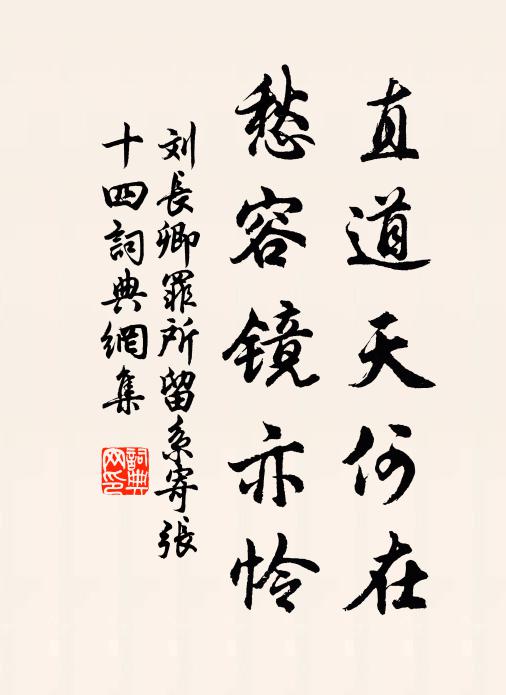 直道天何在
愁容镜亦怜
刘長卿罪所留系寄張
十四詞典網集
詞典网印